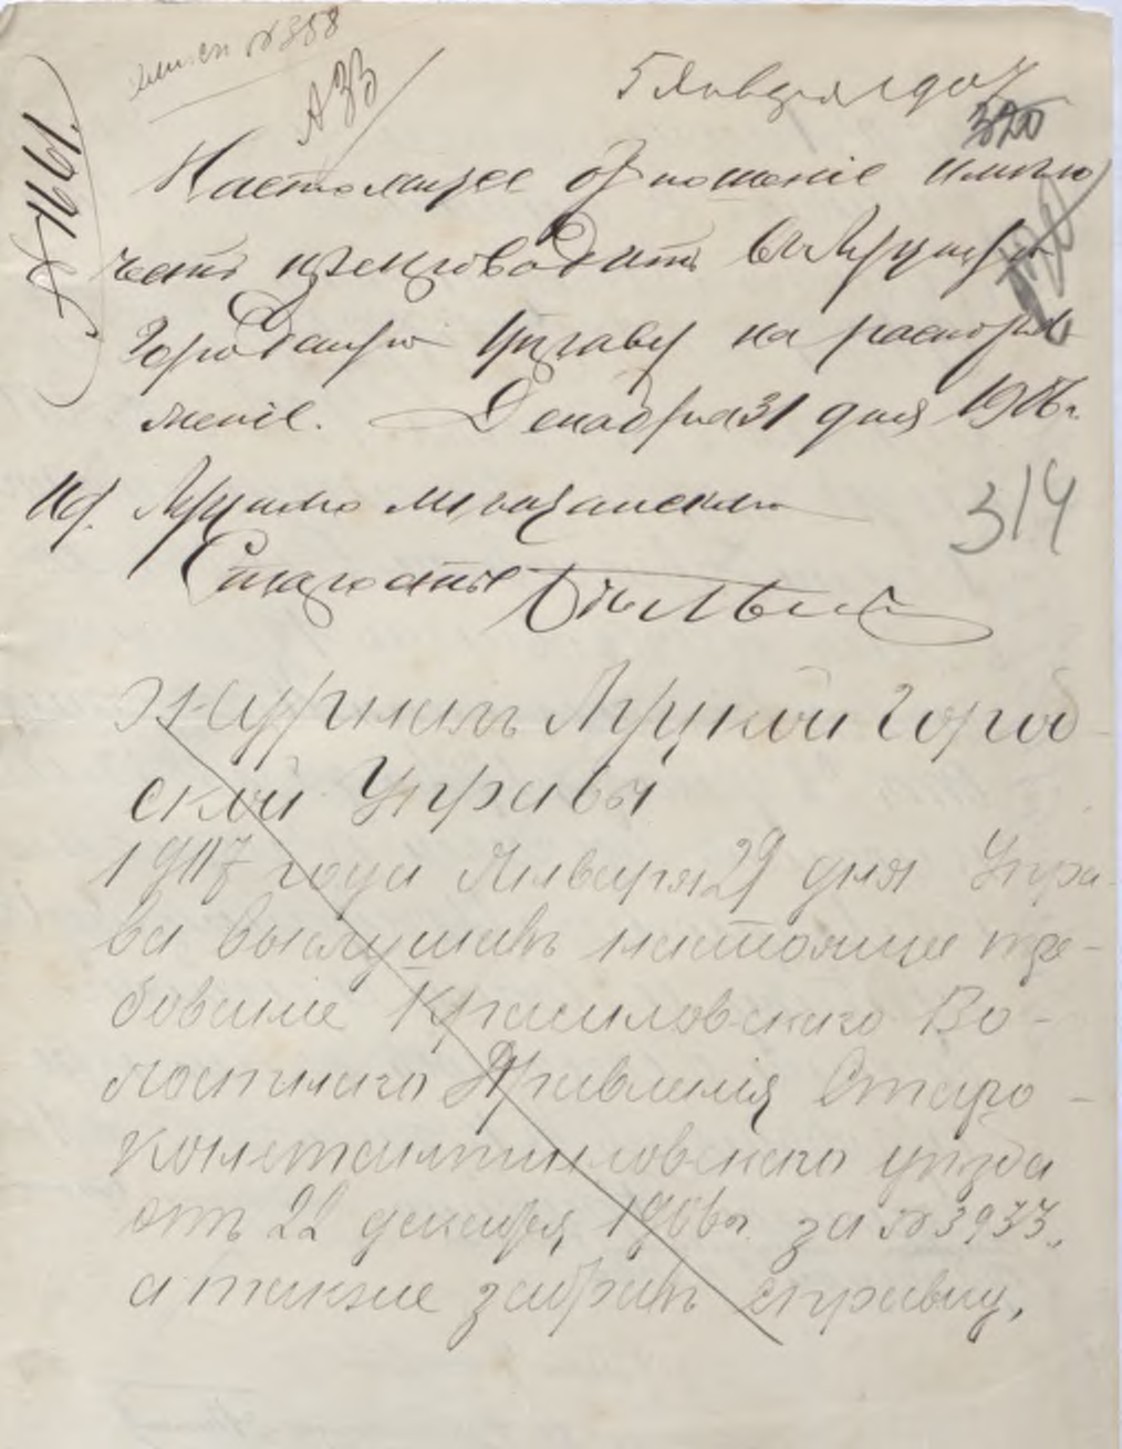 № 358
А33
5 Января 1907
320
Настоящее отношеніе имѣю
честь препроводить въ Луцкую
Городскую Управу на распоря
женіе. Декабря 31 дня 1906 г.
И д. Луцкаго мѣщанскаго
Старосты
314
Журналъ Луцкой Город-
ской Управы
1907 года Января 29 дня Упра-
ва выслушавъ настоящее тре-
бованіе Красиловскаго Во-
лостнаго Правленія Старо-
константиновскаго уѣзда
отъ 22 декабря 1906 г. за № 3933,
а также забравъ справку,